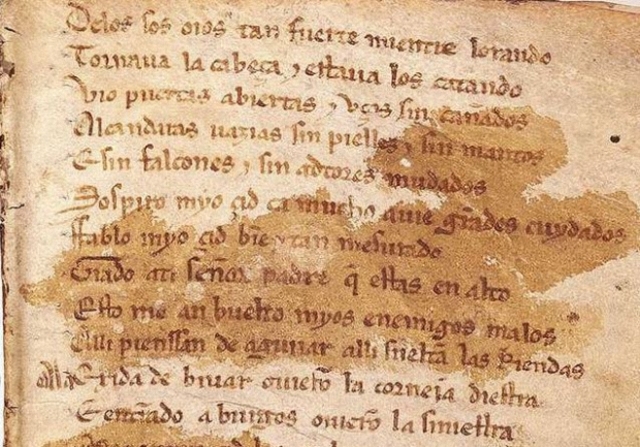 Delos sos oios tan fuerte mientre lorando
Tornaua la cabeça y estaua los catando
Vio puertas abiertas y vços sin cañados
Alcandaras uazias sin pielles y sin mantos
E sin falcones y sin adtores mudados
Sospiro myo çid ca mucho auie grãdes cuydados
ffablo myo çid bie͂ y tan mesurado
Grado ati señor padre q̃ estas en alto
Esto me an buelto myos enemigos malos
Alli pienssan de aguijar alli sueltã las Riendas
Ala Exida de biuar ouierõ la corneia diestra
E entrãdo a burgos ouierõ la siniestra